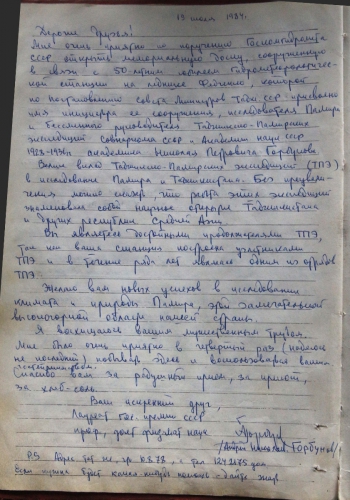 13 июля 1984г.
Дорогие друзья!
Мне очень приятно по поручению Госкомгидромета
СССР открыть мемориальную доску, сооруженную
в связи с 50-летним юбилеем Гидрометеорологичес-
кой станции на леднике Федченко, которой
по постановлению совета Министров Тадж ССР присвоено
имя инициатора ее сооружения, исследователя Памира
и бессменного руководителя Таджикско-Памирских
экспедиций Совнаркома ССР и Академии наук ССР
1928-1936г. академика Николая Петровича Горбунова.
Велик вклад Таджикско-Памирских экспедиций (ТПЭ)
в исследование Памира и Таджикистана. Без преувели-
чения можно сказать, что работа этих экспедиций
знаменовала собой научное открытие Таджикистана
и других республик Средней Азии.
Вы являетесь достойными продолжателями ТПЭ,
так как ваша станция построена участниками
ТПЭ и в течение ряда лет являлась одним из отрядов
ТПЭ.
Желаю вам новых успехов в исследовании
климата и природы Памира, этой замечательной
высокогорной области нашей страны.
Я восхищаюсь вашим мужественным трудом.
Мне было очень приятно в первый раз (надеюсь
не последний) побывать здесь и воспользоваться вашим
гостеприимством.
Спасибо вам за радушный прием, за приют,
за хлеб-соль.
Ваш искренний друг,
Лауреат Гос. премии СССР
проф., докт физмат наук
/Андрей Николаевич Горбунов/
P.S.